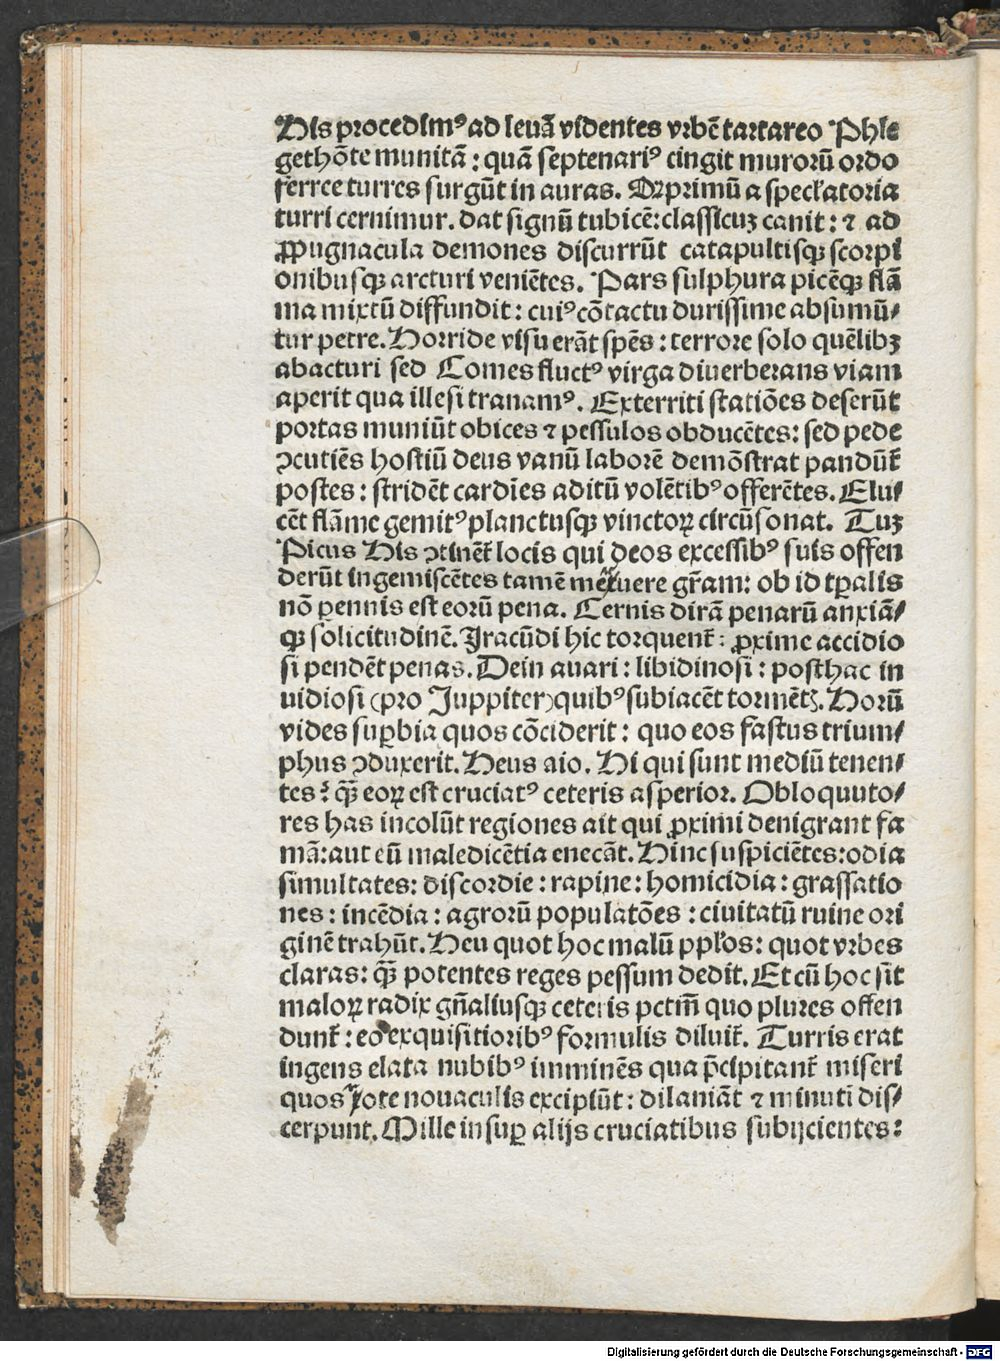 His procedimꝰ ad leuā videntes vrbē tartareo Phle
gethōte munitā : quā septenariꝰ cingit murorū ordo
ferree turres surgūt in auras. Vt primū a speclatoria
turri cernimur. dat signū tubicē: classicuꝫ canit : ⁊ ad
ꝓpugnacula demones discurrūt catapultisqꝫ scorpi
onibusqꝫ arcturi veniētes. Pars sulphura picēqꝫ flā
ma mixtū diffundit : cuiꝰ cōtactu durissime absumū⸗
tur petre. Horride visu erāt spēs : terrore solo quēlibꝫ
abacturi sed Comes fluctꝰ virga diuerberans viam
aperit qua illesi tranamꝰ. Exterriti statiōes deserūt
portas muniūt obices ⁊ pessulos obducētes: sed pede
ꝯcutiēs hostiū deus vanū laborē demōstrat pandūt᷑
postes : stridēt cardīes aditū volētibꝰ offerētes. Elu⸗
cēt flāme gemitꝰ planctusqꝫ vinctoꝝ circūsonat. Tuꝫ
Picus His ꝯtinēt᷑ locis qui deos excessibꝰ suis offen
derūt ingemiscētes tamē meruere gr̄am: ob id tꝑalis
nō ꝑennis est eorū pena. Cernis dirā penarū anxiā⸗
qꝫ solicitudinē. Iracūdi hic torquent᷑ : ꝓxime accidio
si pendēt penas. Dein auari : libidinosi : posthac in
uidiosi (pro Juppiter) quibꝰ subiacēt tormētꝭ. Horū
vides suꝑbia quos cōciderit : quo eos fastus trium⸗
phus ꝯduxerit. Heus aio. Hi qui sunt mediū tenen⸗
tes? qꝫ̄ eoꝝ est cruciatꝰ ceteris asperior. Obloquuto⸗
res has incolūt regiones ait qui ꝓximi denigrant fa
mā: aut eū maledicētia enecāt. Hinc suspiciētes: odia
simultates: discordie : rapine : homicidia : grassatio
nes : incēdia : agrorū populatōes : ciuitatū ruine ori
ginē trahūt. Heu quot hoc malū ppl'os: quot vrbes
claras: qꝫ̄ potentes reges pessum dedit. Et cū hoc sit
maloꝝ radix gn̄aliusqꝫ ceteris pctm̄ quo plures offen
dunt᷑ : eo exquisitioribꝰ formulis diluit᷑. Turris erat
ingens elata nubibꝰ imminēs qua p̄cipitant᷑ miseri
quos rote nouaculis excipiūt : dilaniāt ⁊ minuti dis⸗
cerpunt. Mille insuꝑ alijs cruciatibus subijcientes:
Digitalisierung gefördert durch die Deutsche Forschungsgemeinschaft - DFG